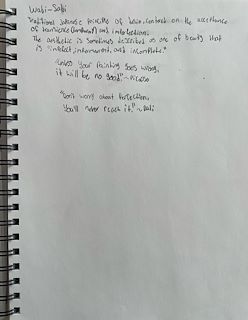 Wabi-Sabi
Traditional Japanese principle of beauty centered on the acceptance
of transience and imperfection.
The aesthetic is sometimes described as one of beauty that
is "imperfect, impermanent, and incomplete."
"Unless your painting goes wrong,
it will be no good." ~Picasso
"Don't worry about perfection,
You'll never reach it." ~Dali